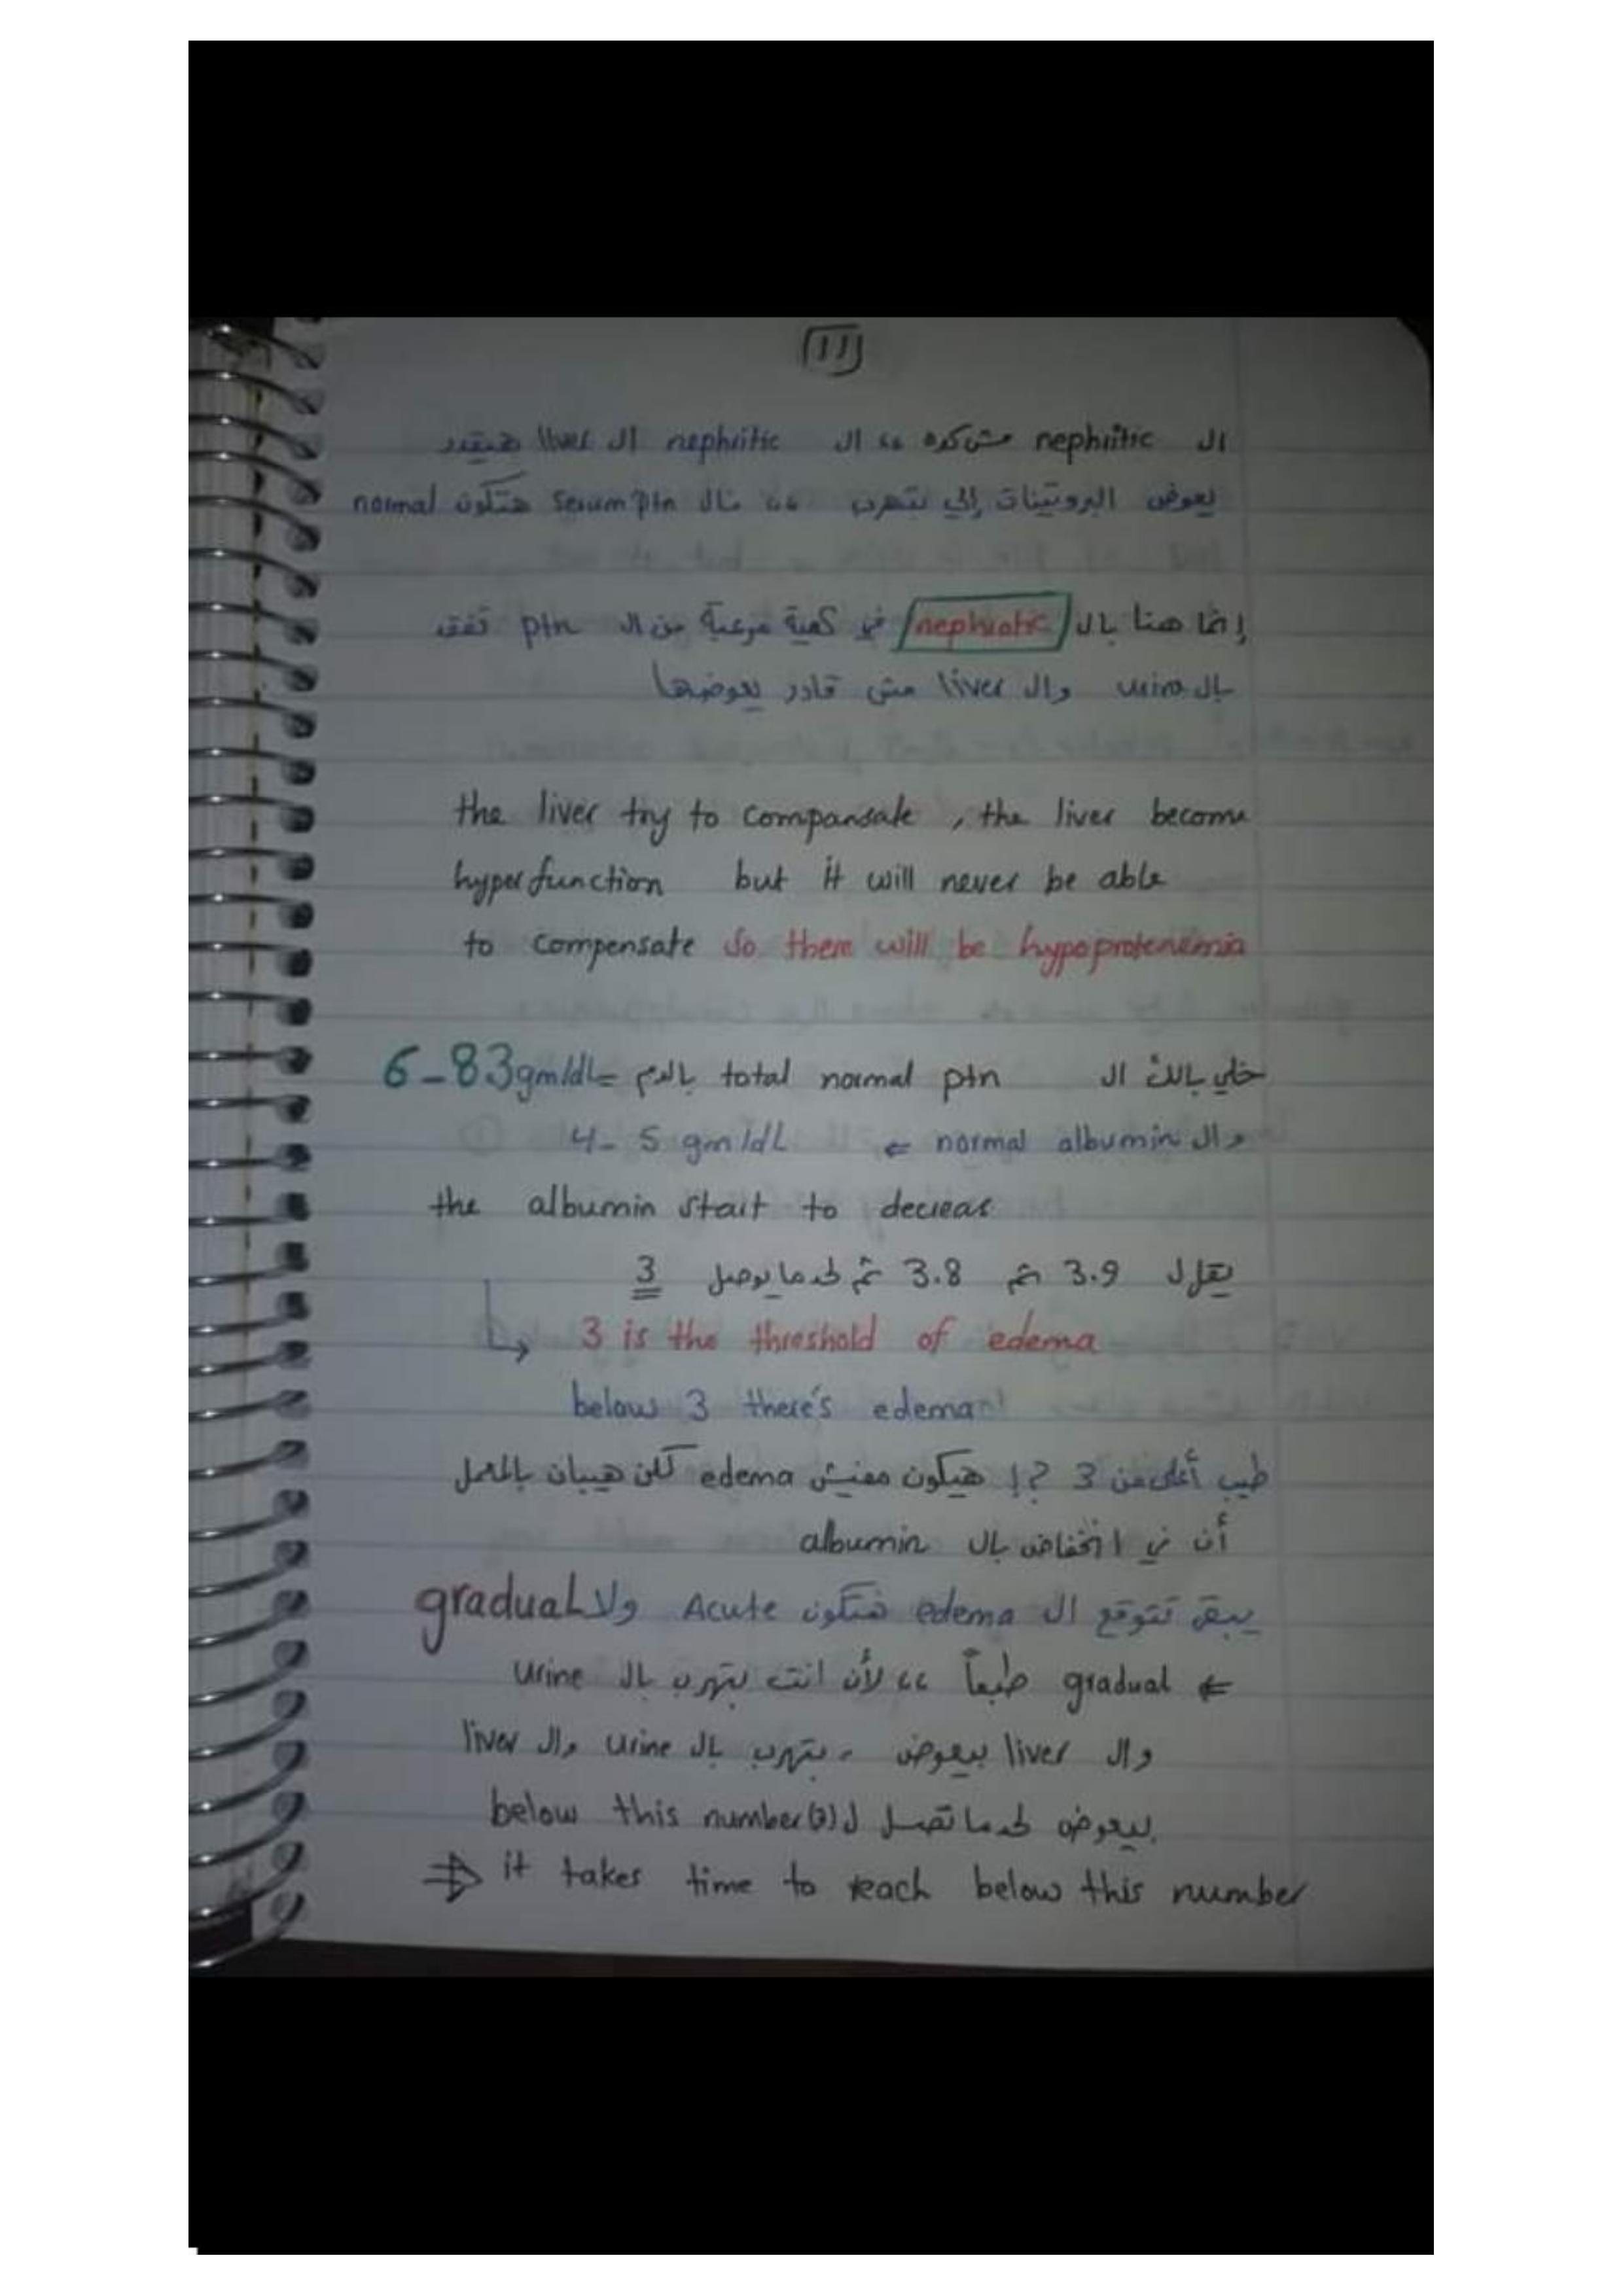 11
ال nephritic مش كده ،، ال nephritic ال liver هيقدر
يعوض البروتينات إلي بتهرب ،، فال serum ptn هتكون normal
إنما هنا بال nephrotic في كمية مرعبة من ال ptn تفقد
بال urine وال liver مش قادر يعوضها
the liver try to compansate , the liver become
hyperfunction but it will never be able
to compensate so there will be hypoprotenemia
خلي بالك ال total normal ptn بالدم = 6-83 gm/dL
وال normal albumin ⇐ 4-5 gm/dL
the albumin start to decreas
يقل ل 3.9 ثم 3.8 ثم لحد ما يوصل 3
↳ 3 is the threshold of edema
below 3 there's edema
طيب أعلى من 3 ?! هيكون مفيش edema لكن هيبان بالمعمل
أن في انخفاض بال albumin
يبقى تتوقع ال edema هتكون Acute ولا gradual
⇐ gradual طبعاً ،، لأن انت بتهرب بال urine
وال liver بيعوض ، بتهرب بال urine وال liver
بيعوض لحد ما تصل ل below this number (3)
⇒ it takes time to reach below this number